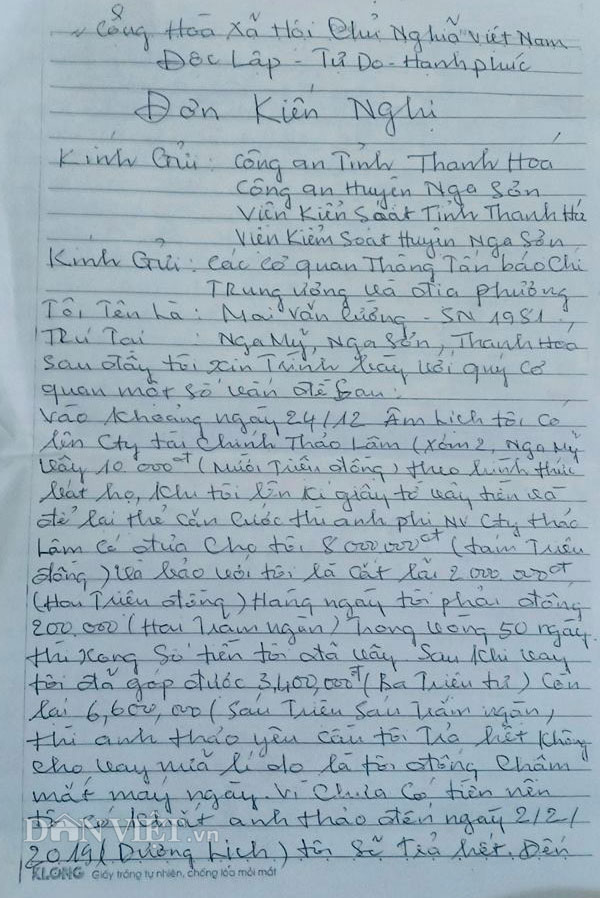 Cổng Hoà Xã Hội Chủ Nghĩa Việt Nam
Độc Lập - Tự Do - Hạnh phúc
Đơn Kiến Nghị
Kính Gửi : Công an Tỉnh Thanh Hoá
Công an Huyện Nga Sơn
Viên Kiểm Soát Tỉnh Thanh Hó
Viên Kiểm Soát Huyện Nga Sơn
Kính Gửi : các cơ quan Thông Tấn báo Chí
Trung ương và địa phương
Tôi Tên Là : Mai Văn Cường - SN 1981
Trú Tại : Nga Mỹ, Nga Sơn, Thanh Hoá
Sau đây tôi xin Trình bày với quý cơ
quan một số vấn đề sau:
Vào khoảng ngày 24/12 Âm Lịch tôi có
lên Cty tài Chính Thảo Lâm (Xóm 2, Nga Mỹ
vây 10 000đ (Mười Triệu đồng) theo hình thức
bát họ, Khi tôi lên kí giấy tờ vây tiền và
để lại thẻ căn cước thì anh phi NV Cty thảo
Lâm có đưa Cho tôi 8 000.000đ (tám Triệu
đồng) và bảo với tôi là cắt lãi 2 000.000đ
(Hai Triệu đồng) Hàng ngày tôi phải đóng
200.000 (Hai Trăm ngàn) Trong vòng 50 ngày
thì xong Số tiền tôi đã vây Sau khi vay
tôi đã góp được 3,400,000đ (Ba Triệu tư) Còn
lại 6,600,000 (Sáu Triệu Sáu Trăm ngàn)
thì anh thảo yêu cầu tôi Trả hết không
cho vay nữa lí do là tôi đóng Chậm
mất mấy ngày. Vì Chưa Có tiền nên
tôi có khất anh thảo đến ngày 2/2/
2019 (Dương Lịch) tôi sẽ Trả hết. Đến
DÂNVIỆT.vn
KLONG Giấy trắng tự nhiên, chống lóa mỏi mắt